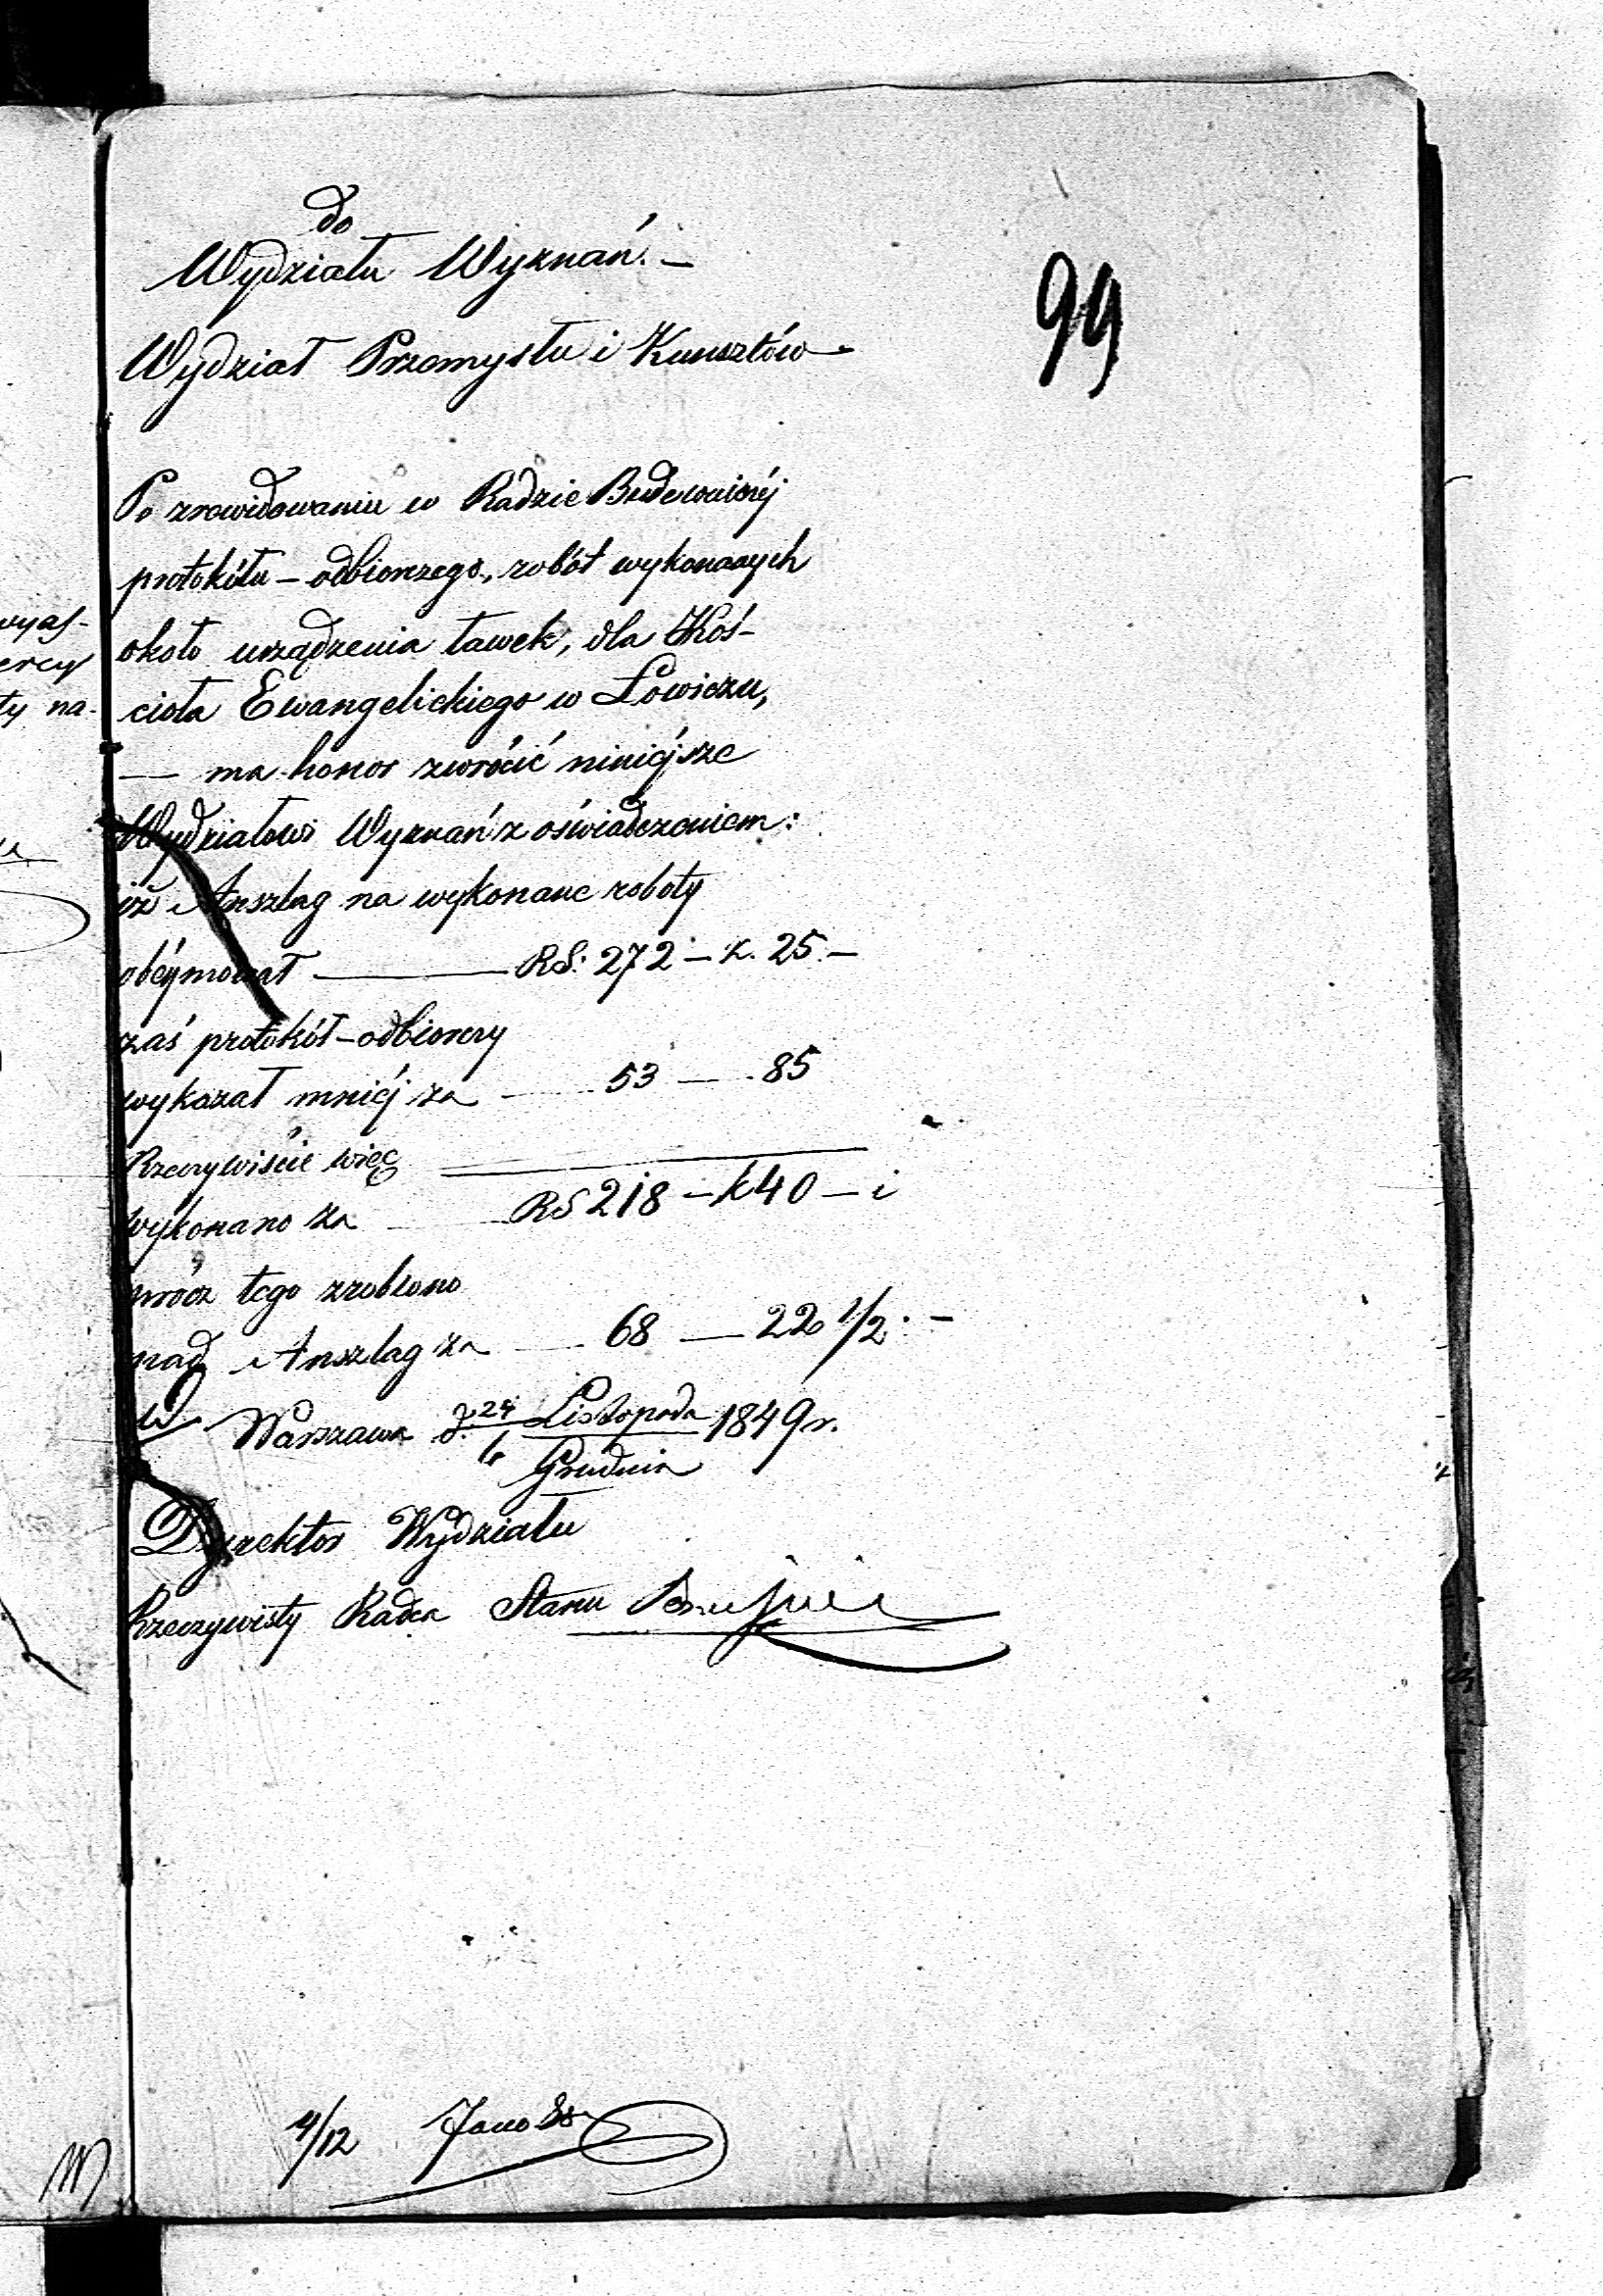 99
do
Wydziału Wyznań. —
Wydział Przemysłu i Kunsztów
Po zrewidowaniu w Radzie Budowniczéj
protokółu – odbiorczego, robót wykonanych
około urządzenia ławek, dla Koś-
cioła Ewangelickiego w Łowiczu,
— ma honor zwrócić niniéjsze
Wydziałowi Wyznań z oświadczeniem:
iż Anszlag na wykonane roboty
obéymował — RS: 272 – k. 25 –
zaś protokół – odbiorczy
wykazał mniéj za — 53 — 85
Rzeczywiście więc
wykonano za — RS 218 – k 40 – i
prócz tego zrobiono
nad Anszlag za — 68 — 22 1/2. –
w Warszawa d. 24 Listopada 1849 r.
6 Grudnia
Dyrektor Wydziału
Rzeczywisty Radca Stanu
4/12
wyas-
ercy
ty na-